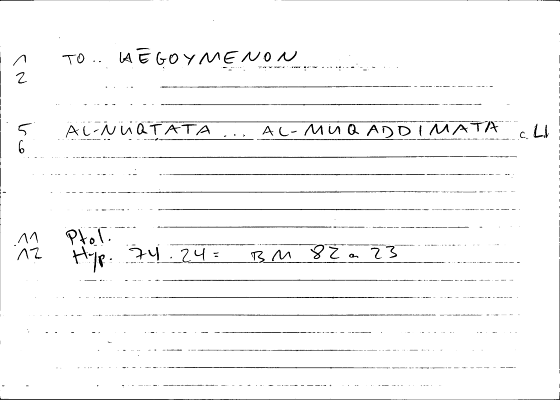 1 TO.. HĒGOYMENON
2
5 AL-NUQṬATA ... AL-MUQADDIMATA
6
11 Ptol.
12 Hyp. 74.24 = BM 82a 23